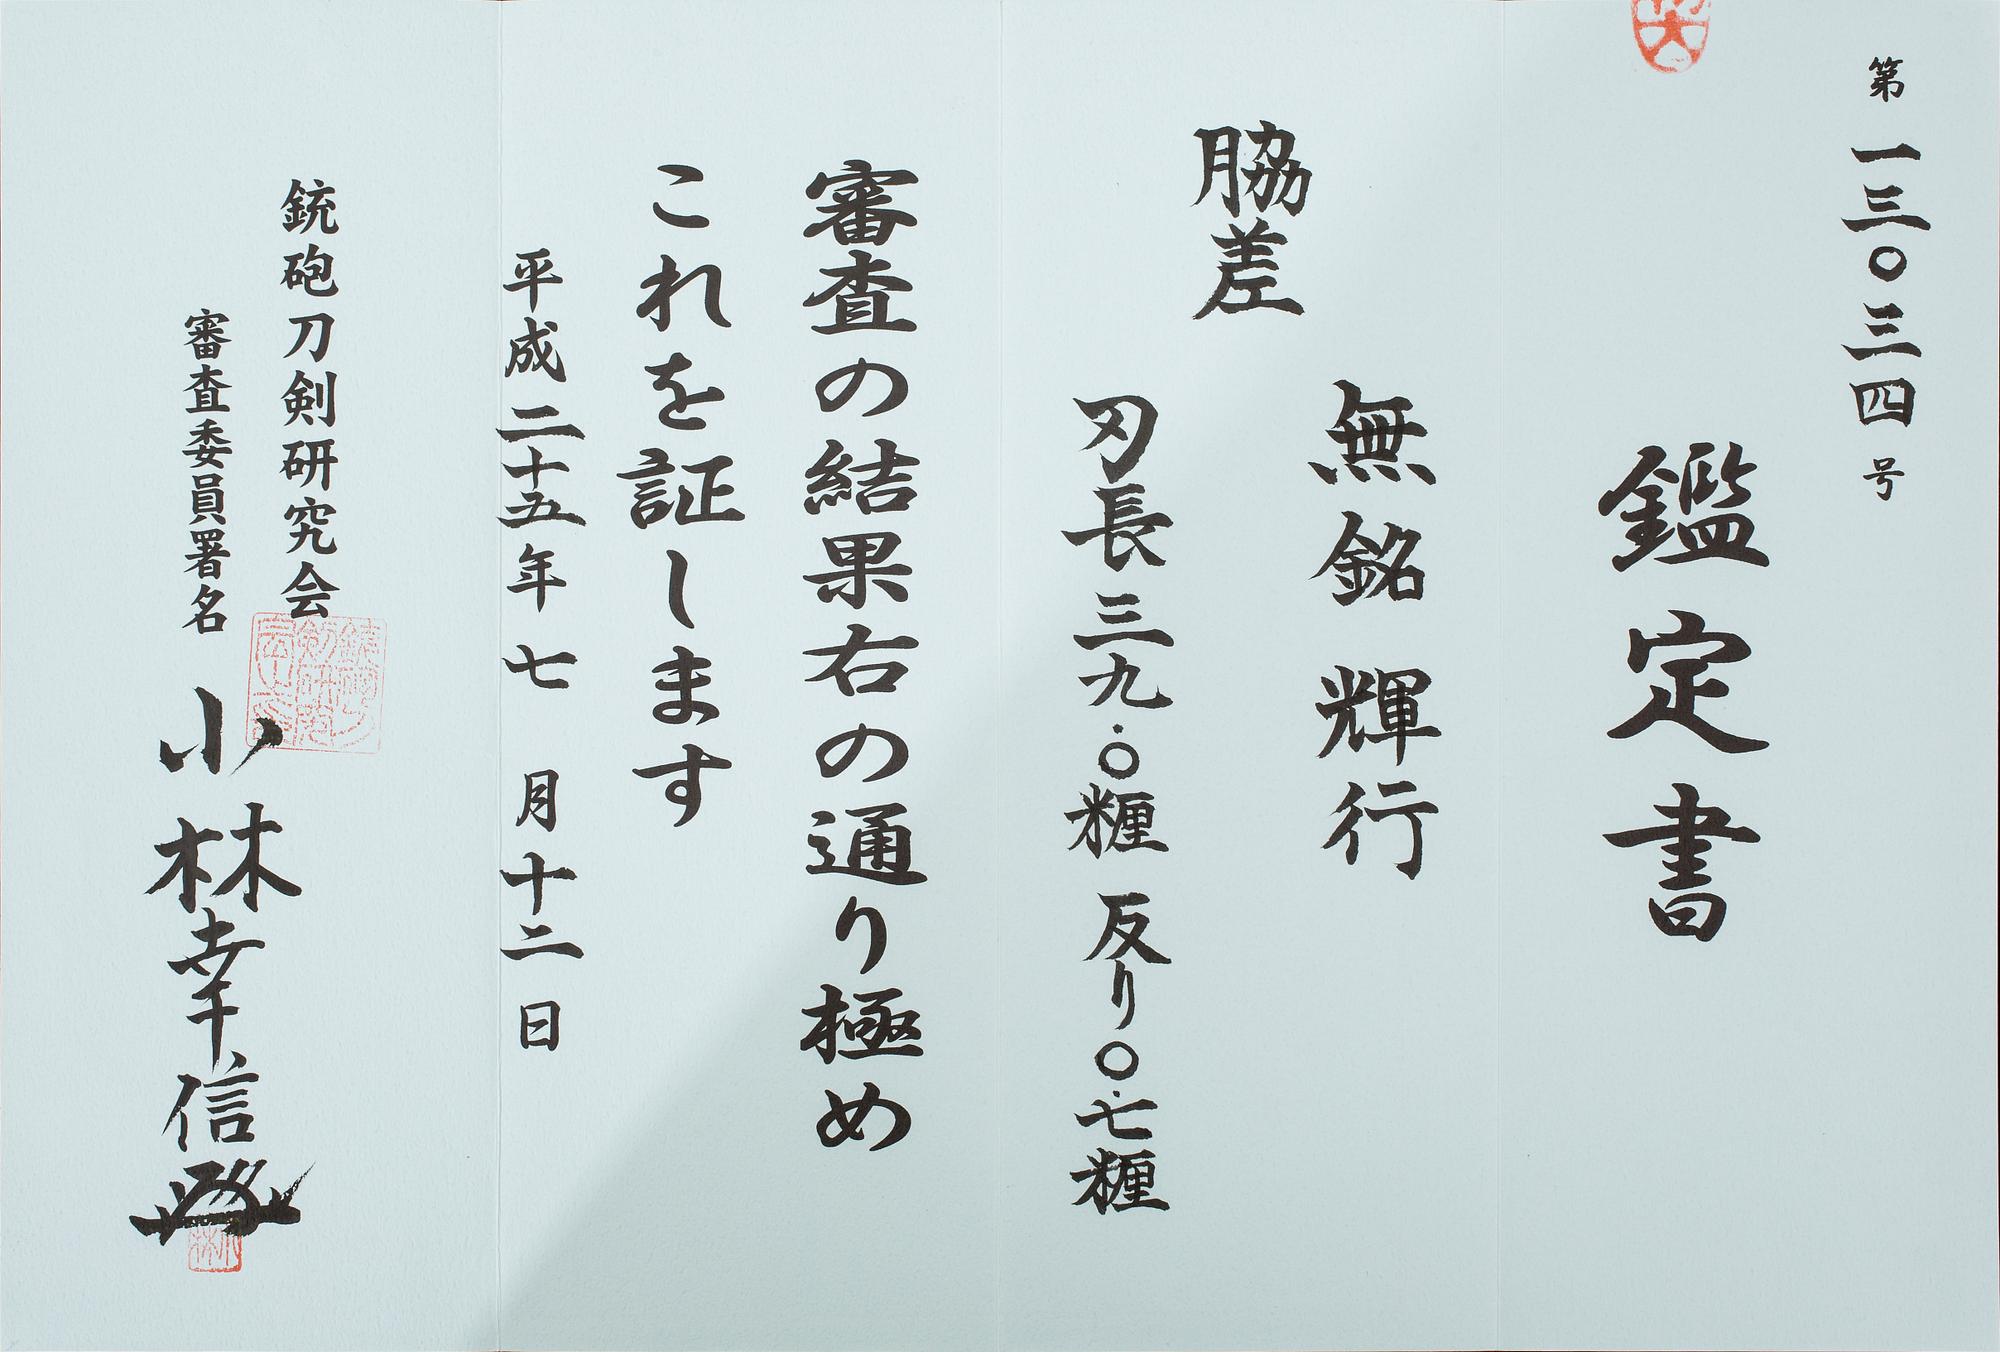 第一三〇三四号
鑑定書
脇差
無銘 輝行
刃長三九・〇糎 反り〇・七糎
審査の結果右の通り極め
これを証します
平成二十五年七月十二日
銃砲刀剣研究会
審査委員署名 小林幸信